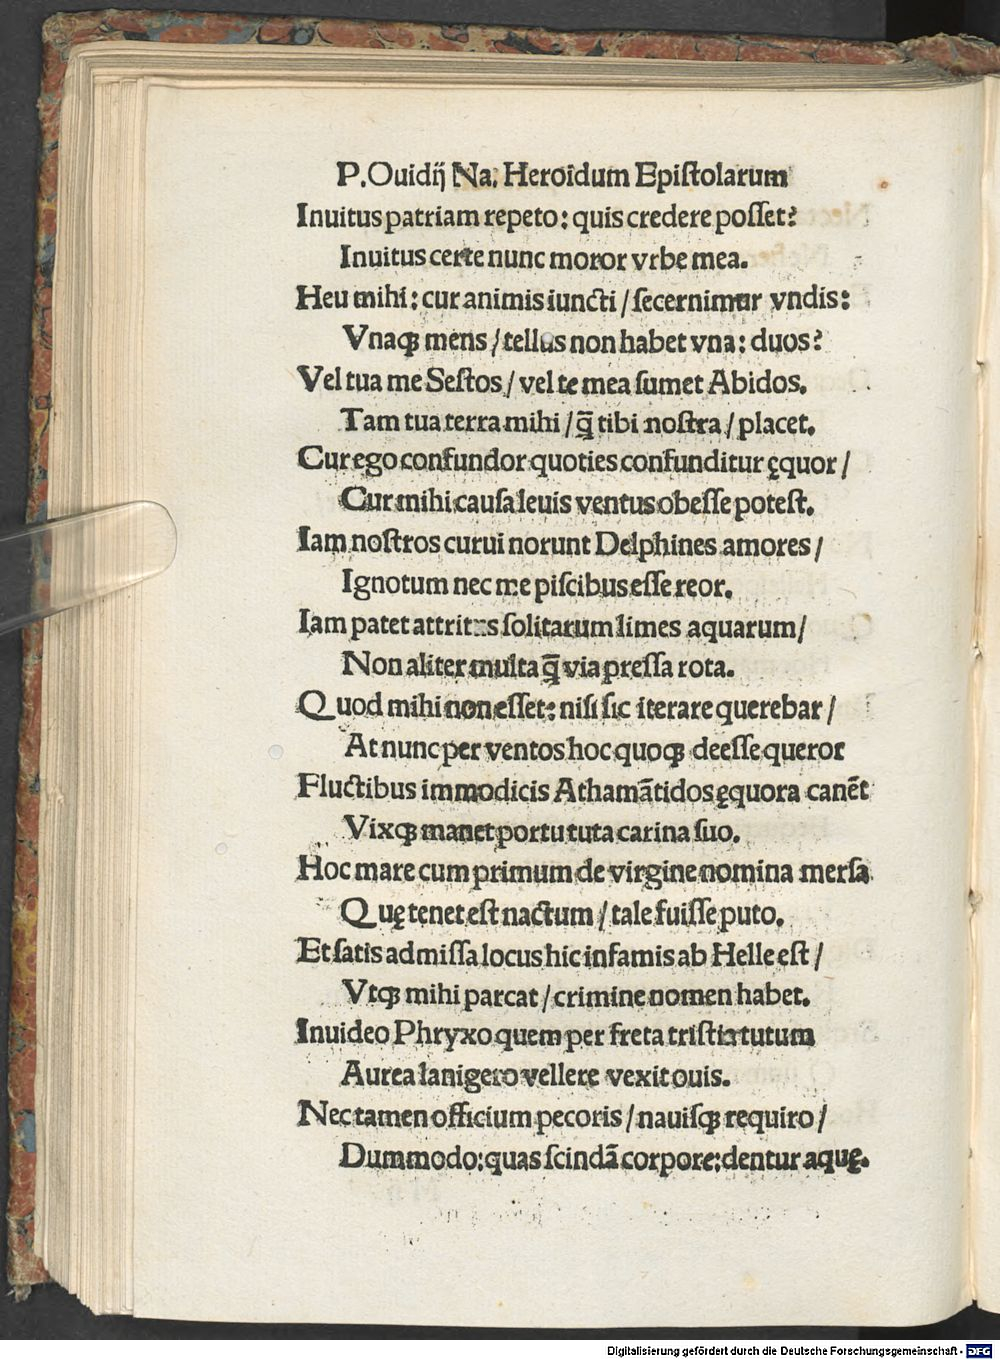 P. Ouidij Na. Heroīdum Epiſtolarum
Inuitus patriam repeto: quis credere poſſet?
Inuitus certe nunc moror vrbe mea.
Heu mihi: cur animis iuncti / ſecernimur vndis:
Vnaqꝫ mens / tellus non habet vna: duos?
Vel tua me Seſtos / vel te mea ſumet Abidos.
Tam tua terra mihi / q̄ tibi noſtra / placet.
Cur ego confundor quoties confunditur ęquor /
Cur mihi cauſa leuis ventus obeſſe poteſt.
Iam noſtros curui norunt Delphines amores /
Ignotum nec me piſcibus eſſe reor.
Iam patet attritus ſolitarum limes aquarum /
Non aliter multa q̄ via preſſa rota.
Quod mihi non eſſet: niſi ſic iterare querebar /
At nunc per ventos hoc quoqꝫ deeſſe queror
Fluctibus immodicis Athamātidos ęquora canēt
Vixqꝫ manet portu tuta carina ſuo.
Hoc mare cum primum de virgine nomina merſa
Quę tenet eſt nactum / tale fuiſſe puto.
Et ſatis admiſſa locus hic infamis ab Helle eſt /
Vtqꝫ mihi parcat / crimine nomen habet.
Inuideo Phryxo quem per freta triſtia tutum
Aurea lanigero vellere vexit ouis.
Nec tamen officium pecoris / nauiſqꝫ requiro /
Dummodo: quas ſcindā corpore: dentur aquę.
Digitalisierung gefördert durch die Deutsche Forschungsgemeinschaft - DFG